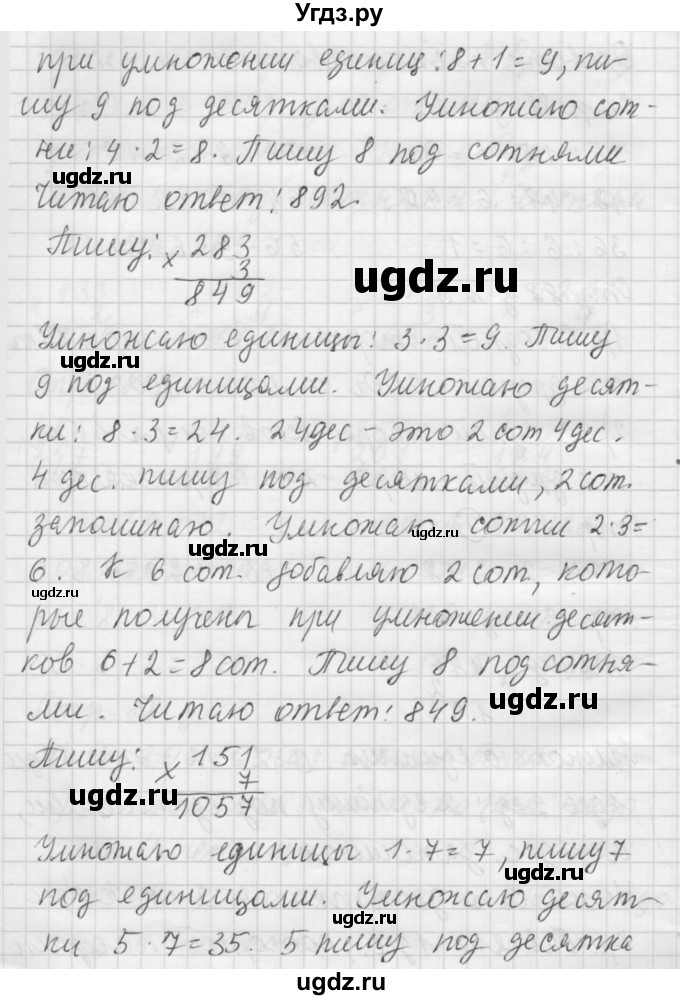 Угдз.ру
при умножении единиц: 8+1=9, пи-
шу 9 под десятками. Умножаю сот-
ни: 4·2=8. Пишу 8 под сотнями
ugdz.ru
ugdz.ru
Читаю ответ: 892.
Пишу: × 283
3
849
ugdz.ru
ugdz.ru
Умножаю единицы: 3·3=9. Пишу
ugdz.ru
9 под единицами. Умножаю десят-
ки: 8·3=24. 24дес – это 2 сот 4дес.
4 дес. пишу под десятками, 2 сот.
запоминаю. Умножаю сотни 2·3=
ugdz.ru
ugdz.ru
6. К 6 сот. добавляю 2 сот, кото-
ugdz.ru
рые получены при умножении десят-
ков 6+2=8 сот. Пишу 8 под сотня-
ugdz.ru
ми. Читаю ответ: 849.
Пишу: × 151
7
1057
ugdz.ru
ugdz.ru
Умножаю единицы 1·7=7, пишу 7
под единицами. Умножаю десят-
ugdz.ru
ки 5·7=35. 5 пишу под десятка
ugdz.ru